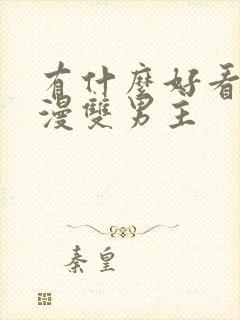 有什麼好看
漫雙男主
秦皇